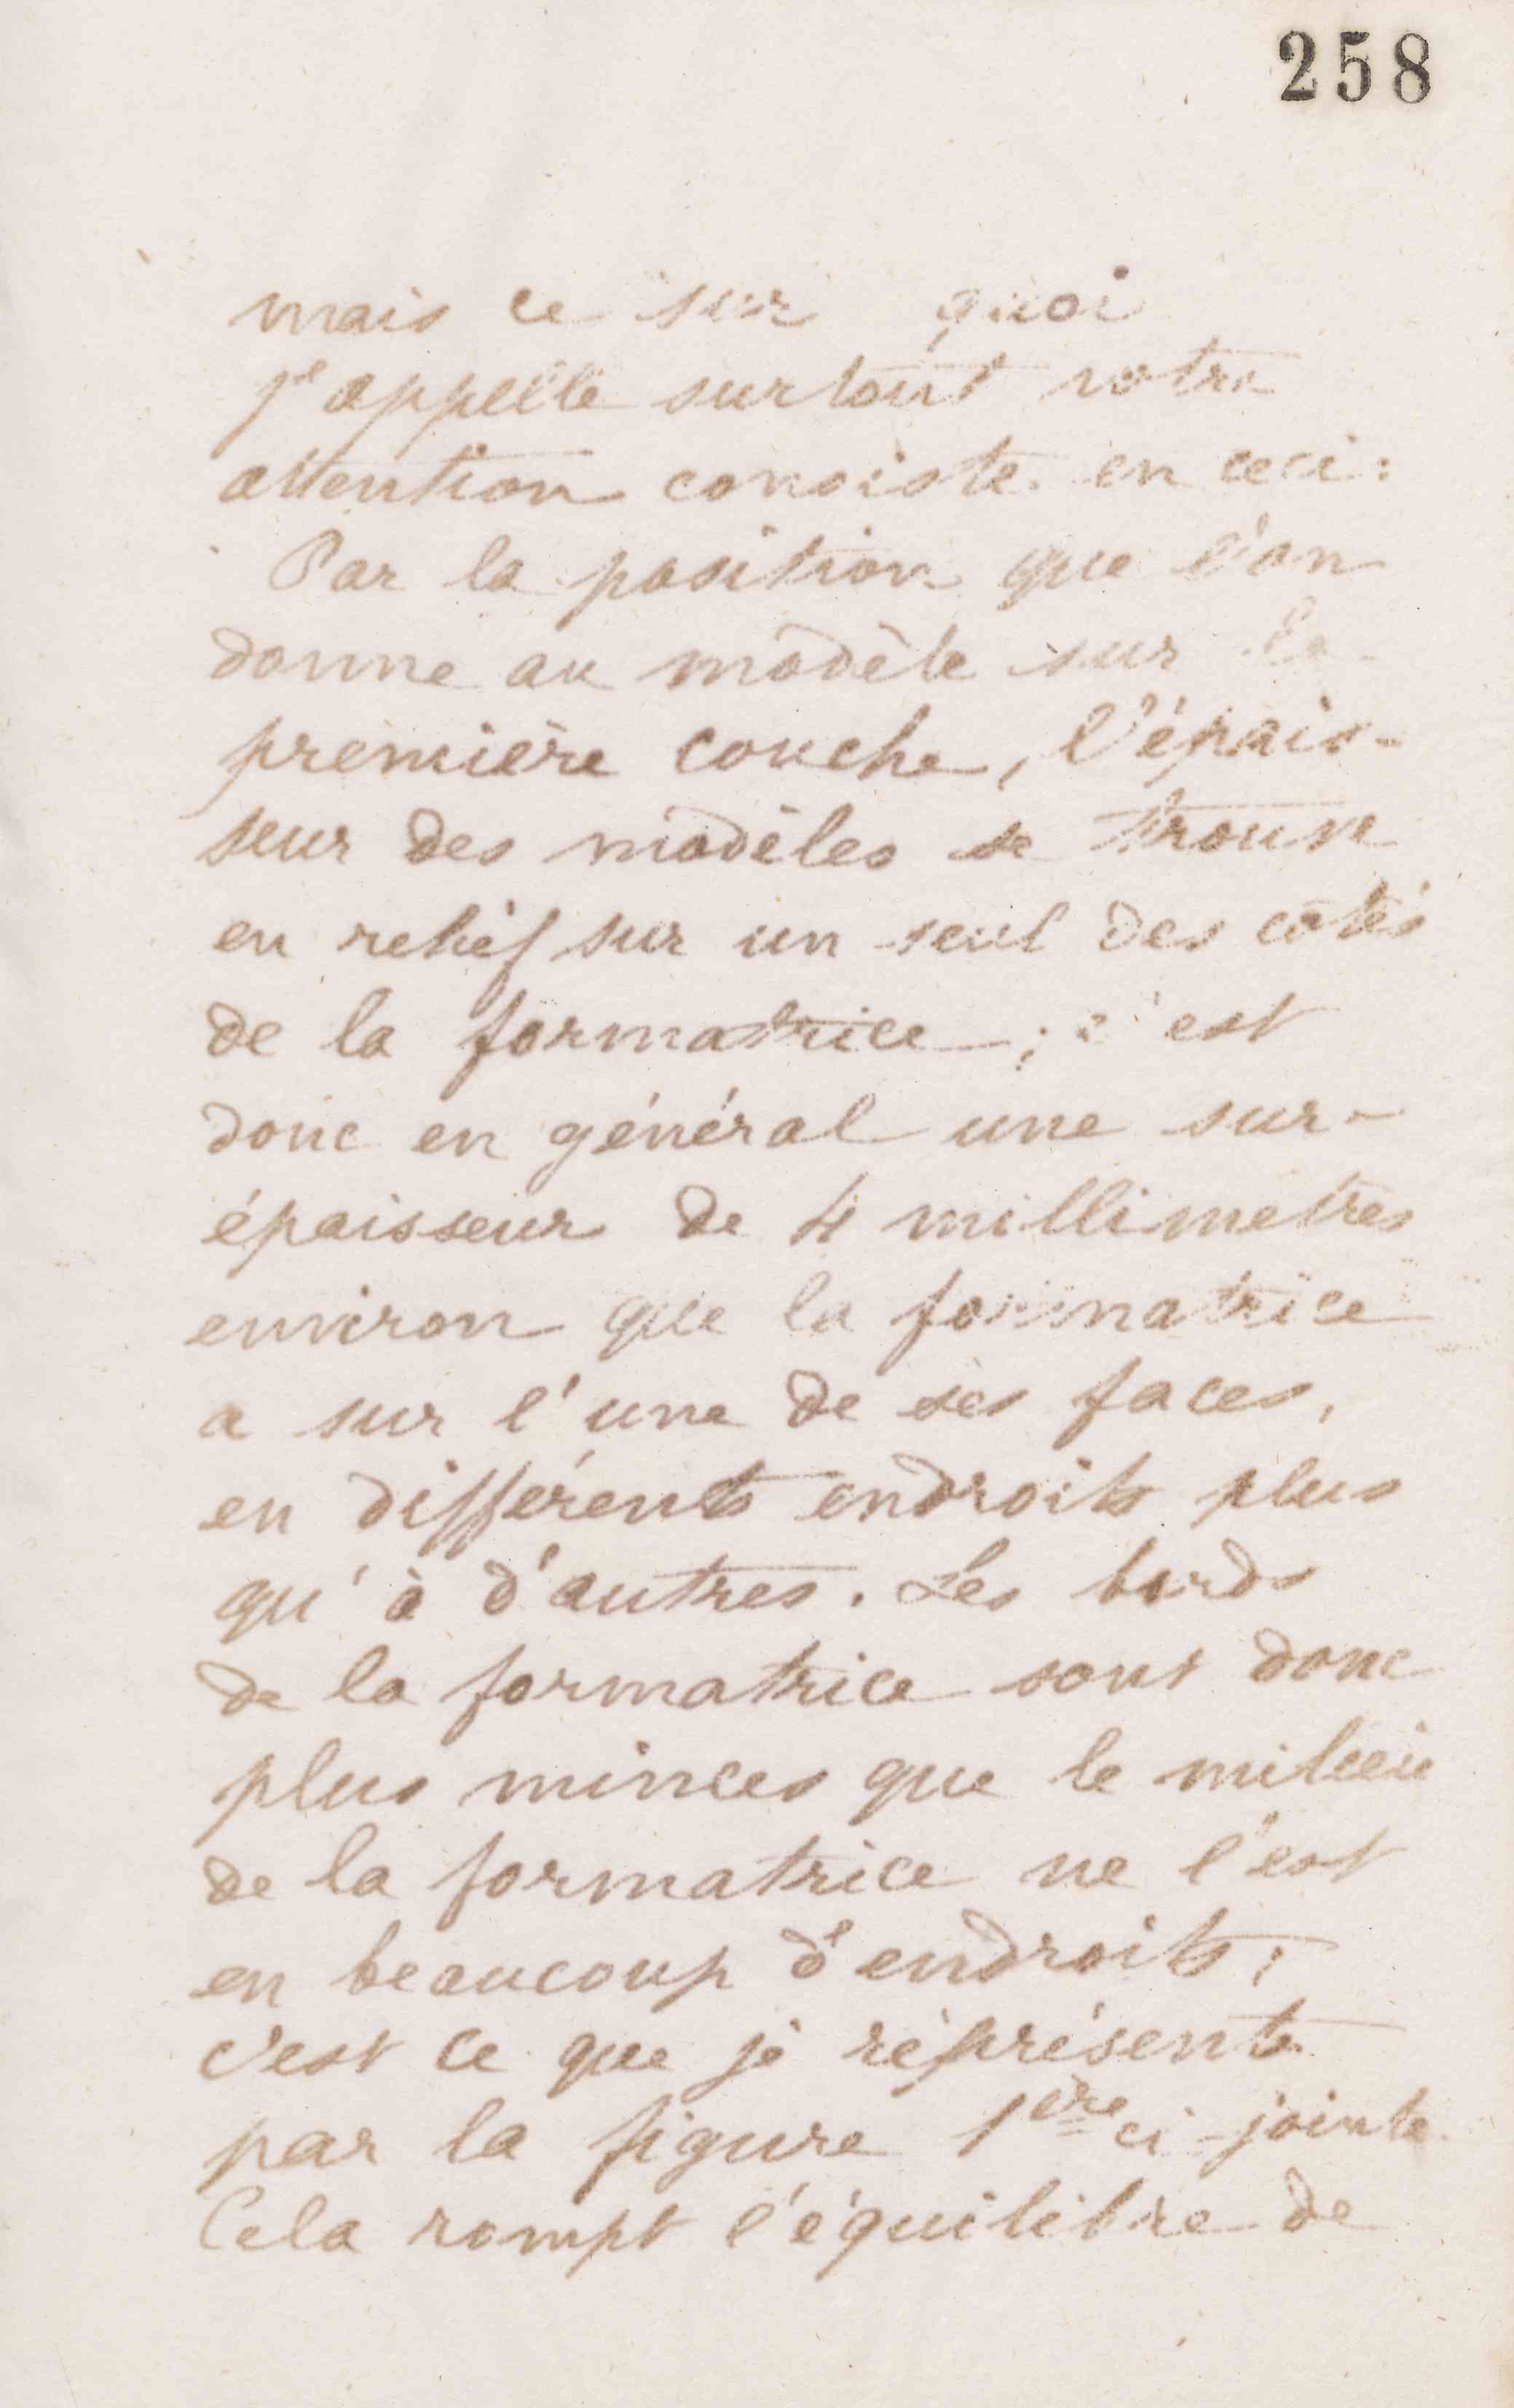 258
mais ce sur quoi
j'appelle surtout votre
attention consiste en ceci :
Par la position que l'on
donne au modèle sur la
première couche, l'épais-
seur des modèles se trouve
en relief sur un seul des côtés
de la formatrice ; c'est
donc en général une sur-
épaisseur de 4 millimetres
environ que la formatrice
a sur l'une de ses faces,
en différents endroits plus
qu'à d'autres. Les bords
de la formatrice sont donc
plus minces que le milieu
de la formatrice ne l'est
en beaucoup d'endroits ;
c'est ce que je représente
par la figure 1ère ci-jointe
Cela rompt l'équilibre de